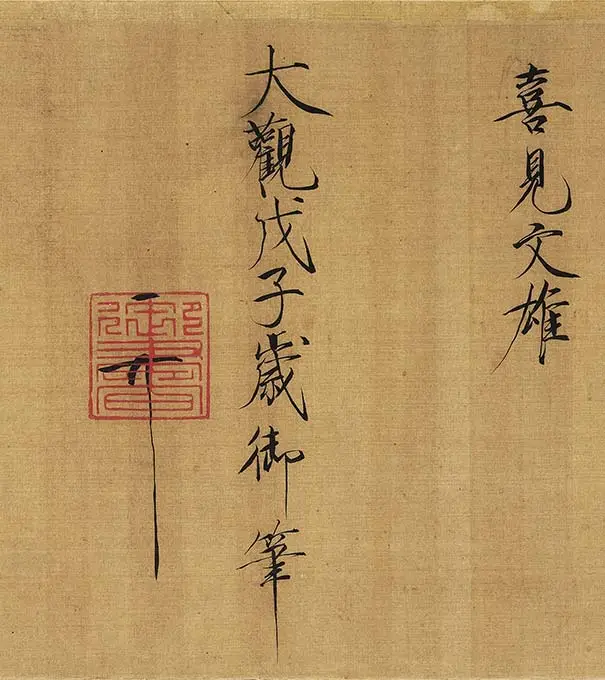 喜見文雄
大觀戊子歲御筆
御書